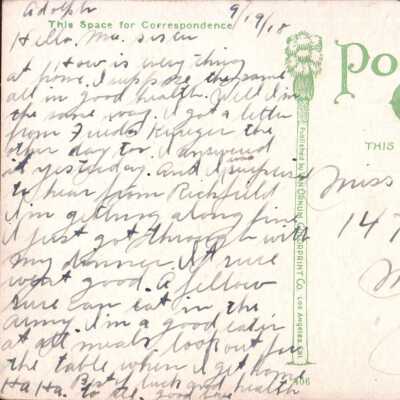 Adolph 9/19/18
This Space for Correspondence
Hello. Mrs. sister
How is every thing
at home. I suppose the same
all in good health. Well I'm
the same way. I got a letter
from Frieda Krueger the
other day too. I answered
it yesterday. And I surprise
to hear from Richfield
I'm getting along fine
I just got through with
my dinner. It sure
went good. A fellow
sure can eat in the
army. I'm a good eater
at all meals. look out for
the table when I get home
Ha Ha. Best luck and health
to all. good
Po
THIS
Miss
147
M
Published by VAN ORNUM COLORPRINT CO. LOS ANGELES, CAL.
406